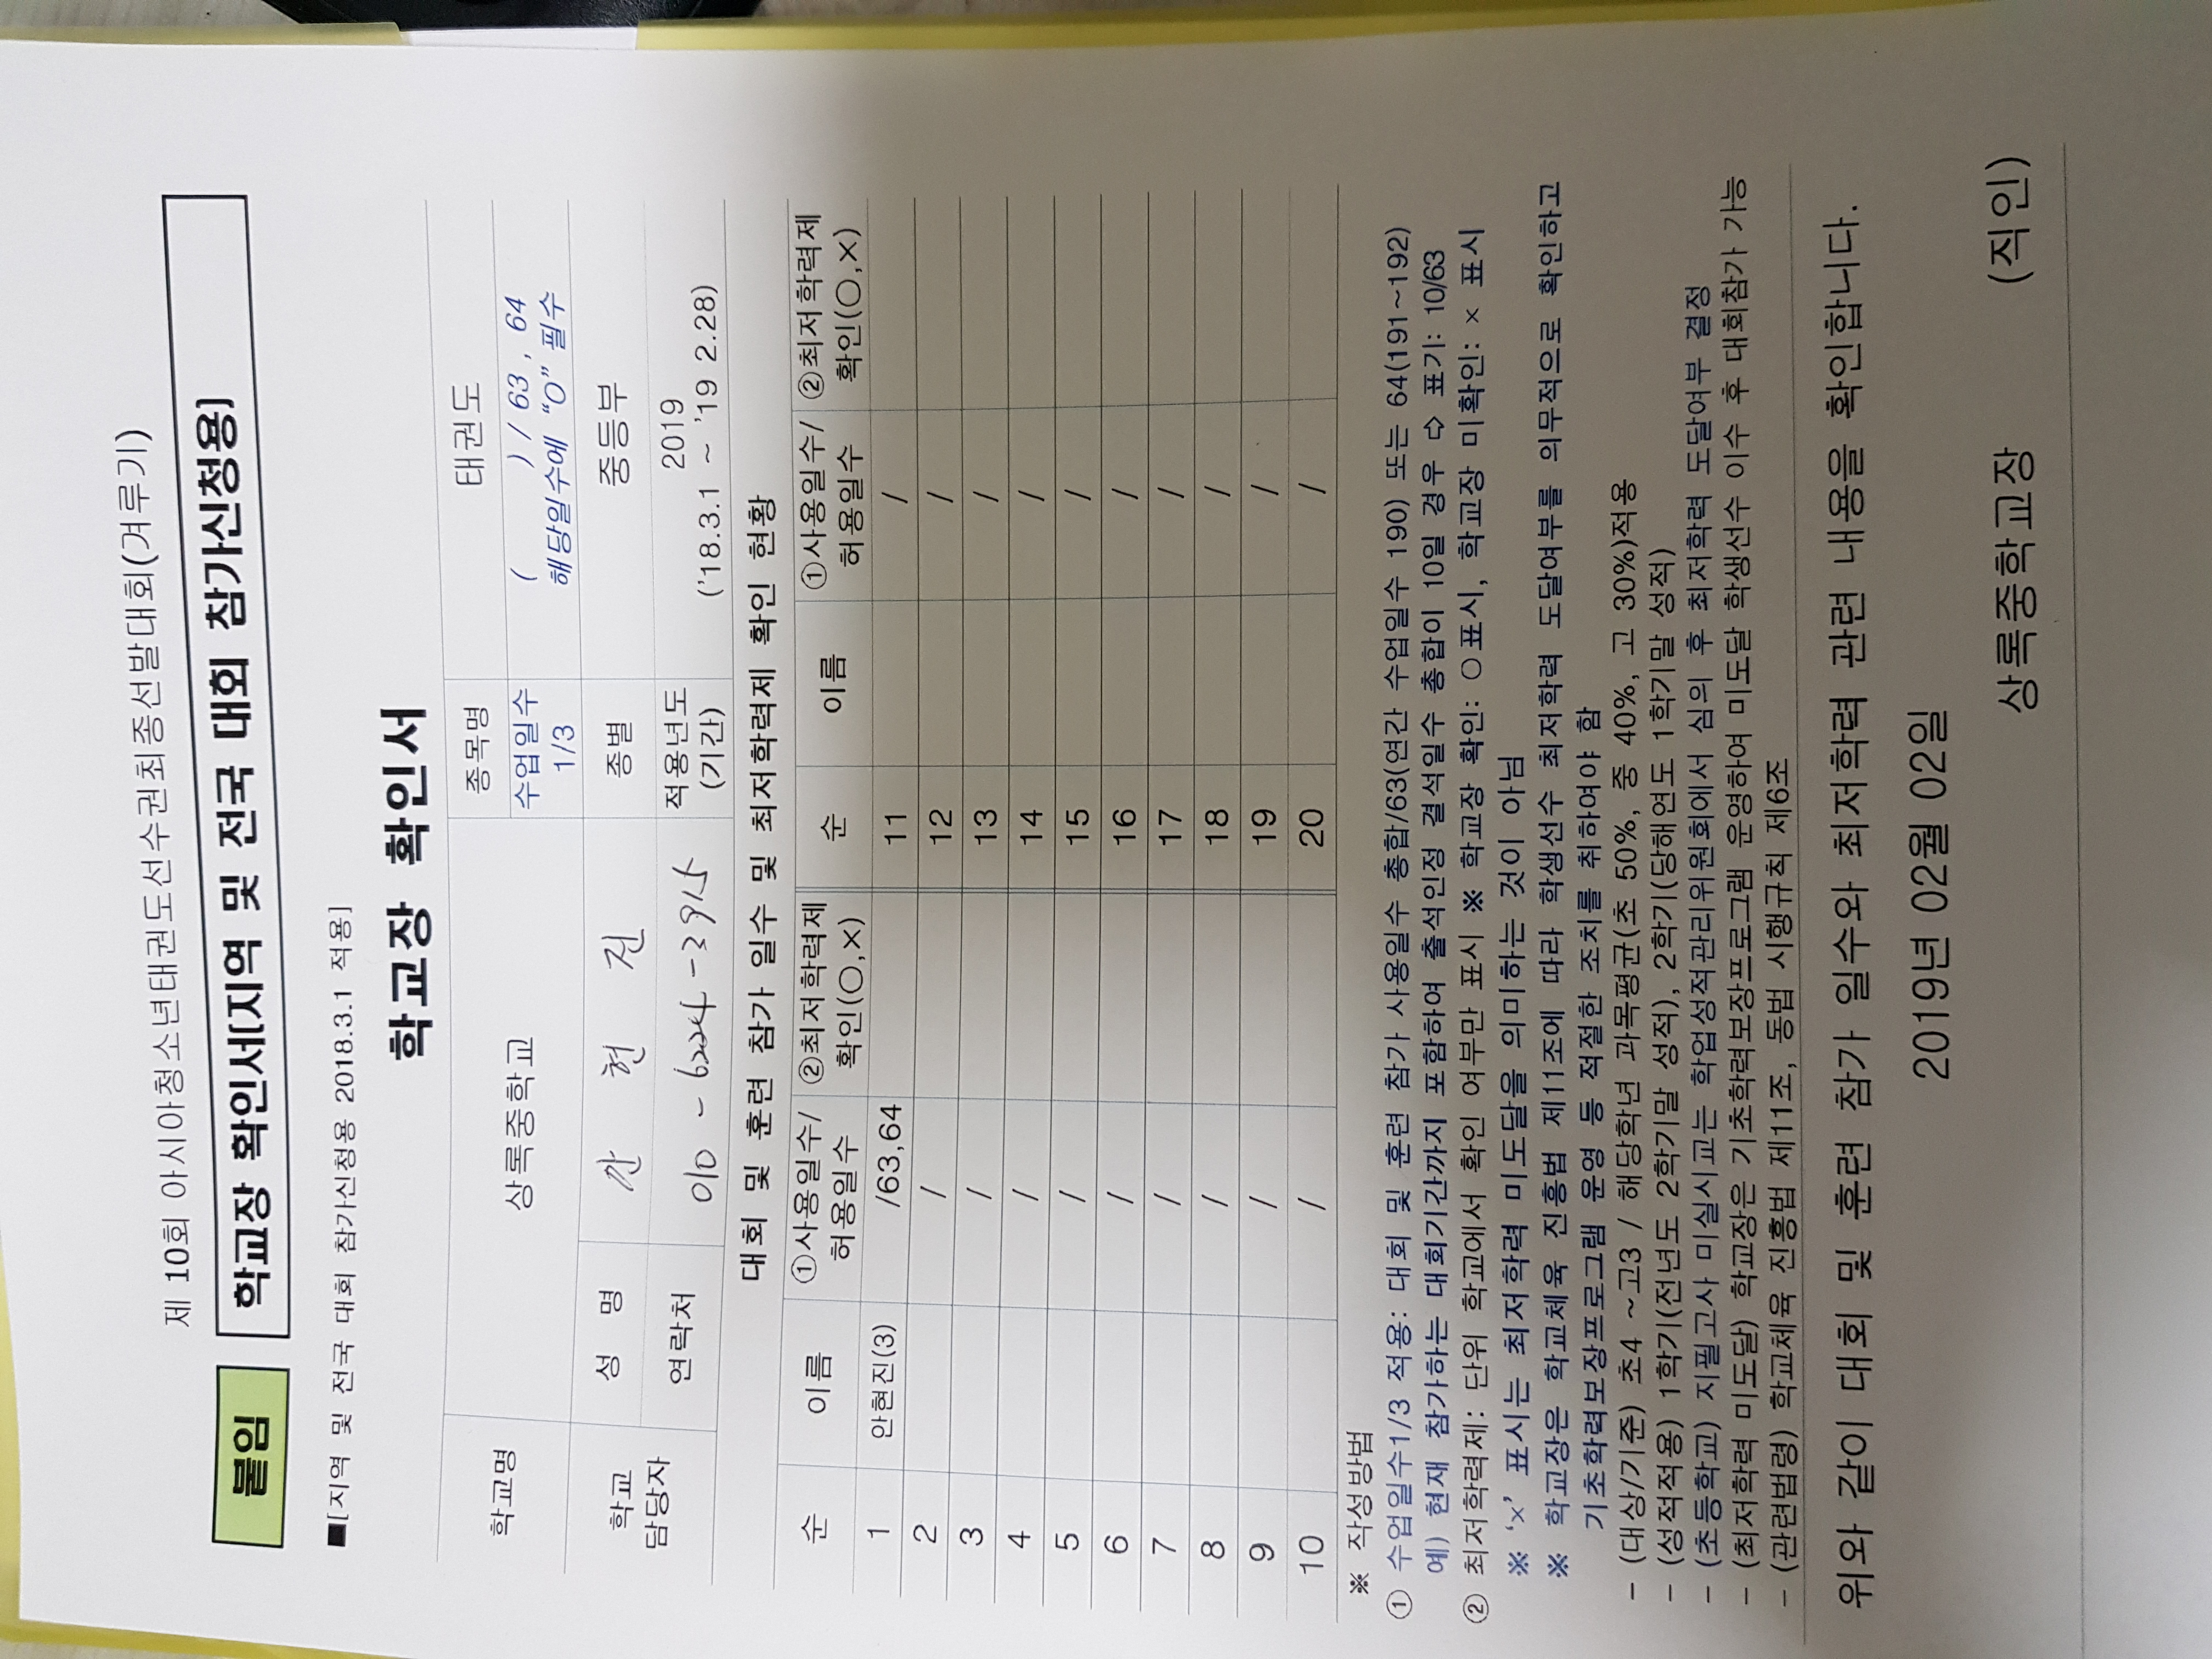 제 10회 아시아청소년태권도선수권최종선발대회(겨루기)
붙임 학교장 확인서[지역 및 전국 대회 참가신청용]
■[지역 및 전국 대회 참가신청용 2018.3.1 적용]
학교장 확인서
학교명 상록중학교 종목명 태권도
수업일수 1/3 ( ) / 63, 64
해당일수에 “O” 필수
학교 담당자 성 명 현 진 종별 중등부
연락처 010 - 6224 - 3915 적용년도 (기간) 2019
('18.3.1 ~ '19 2.28)
대회 및 훈련 참가 일수 및 최저학력제 확인 현황
순 이름 ①사용일수/허용일수 ②최저학력제 확인(○,×) 순 이름 ①사용일수/허용일수 ②최저학력제 확인(○,×)
1 안현진(3) /63,64 11 /
2 / 12 /
3 / 13 /
4 / 14 /
5 / 15 /
6 / 16 /
7 / 17 /
8 / 18 /
9 / 19 /
10 / 20 /
※ 작성방법
① 수업일수1/3 적용: 대회 및 훈련 참가 사용일수 총합/63(연간 수업일수 190) 또는 64(191~192)
예) 현재 참가하는 대회기간까지 포함하여 출석인정 결석일수 총합이 10일 경우 ⇨ 표기: 10/63
② 최저학력제: 단위 학교에서 확인 여부만 표시 ※ 학교장 확인: ○표시, 학교장 미확인: × 표시
※ ‘×’ 표시는 최저학력 미도달을 의미하는 것이 아님
※ 학교장은 학교체육 진흥법 제11조에 따라 학생선수 최저학력 도달여부를 의무적으로 확인하고
기초학력보장프로그램 운영 등 적절한 조치를 취하여야 함
- (대상/기준) 초4 ~고3 / 해당학년 과목평균(초 50%, 중 40%, 고 30%)적용
- (성적적용) 1학기(전년도 2학기말 성적), 2학기(당해연도 1학기말 성적)
- (초등학교) 지필고사 미실시교는 학업성적관리위원회에서 심의 후 최저학력 도달여부 결정
- (최저학력 미도달) 학교장은 기초학력보장프로그램 운영하여 미도달 학생선수 이수 후 대회참가 가능
- (관련법령) 학교체육 진흥법 제11조, 동법 시행규칙 제6조
위와 같이 대회 및 훈련 참가 일수와 최저학력 관련 내용을 확인합니다.
2019년 02월 02일
상록중학교장 (직인)